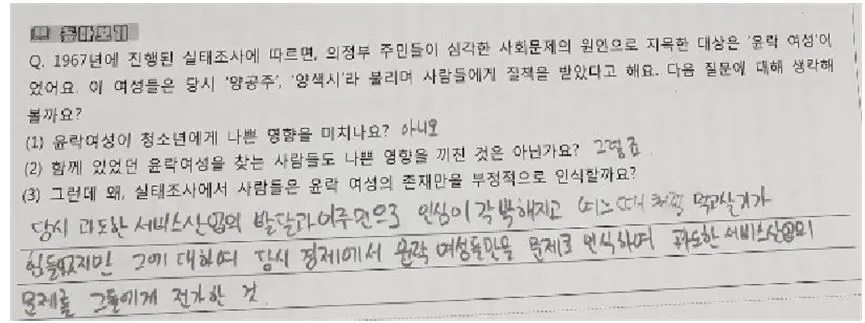 돌아보기
Q. 1967년에 진행된 실태조사에 따르면, 의정부 주민들이 심각한 사회문제의 원인으로 지목한 대상은 '윤락 여성'이
었어요. 이 여성들은 당시 '양공주', '양색시'라 불리며 사람들에게 질책을 받았다고 해요. 다음 질문에 대해 생각해
볼까요?
(1) 윤락여성이 청소년에게 나쁜 영향을 미치나요? 아니오
(2) 함께 있었던 윤락여성을 찾는 사람들도 나쁜 영향을 끼친 것은 아닌가요? 그렇죠
(3) 그런데 왜, 실태조사에서 사람들은 윤락 여성의 존재만을 부정적으로 인식할까요?
당시 과도한 서비스산업의 발달과 이주민으로 인심이 각박해지고 먹고살기가
힘들었지만 그에 대하여 당시 경제에서 윤락 여성들만을 문제로 인식하며 과도한 서비스산업의
문제를 그들에게 전가한 것